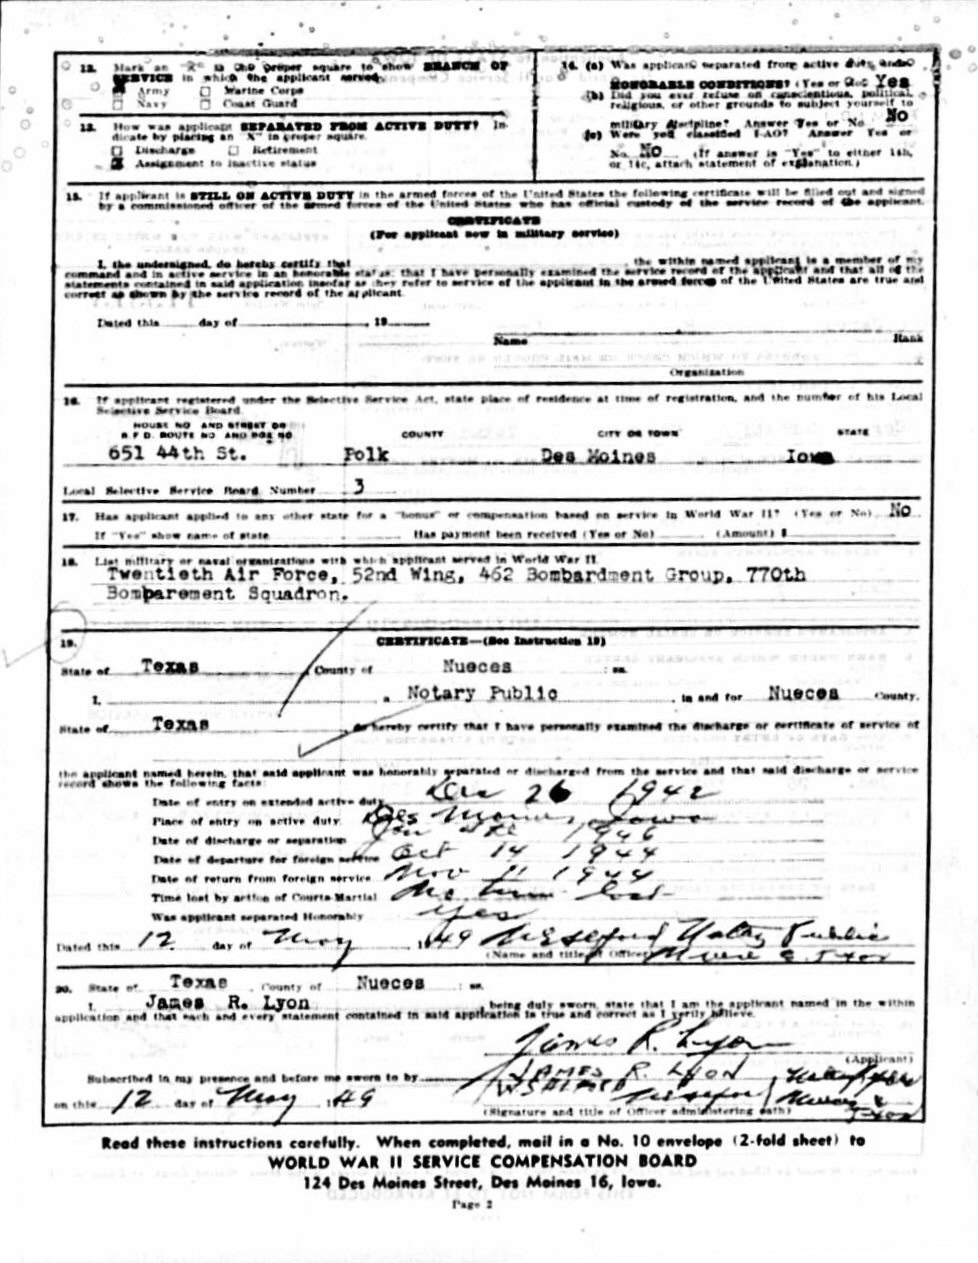 12. Mark an "X" in the proper square to show BRANCH OF
SERVICE in which the applicant served.
X Army □ Marine Corps
□ Navy □ Coast Guard
13. How was applicant SEPARATED FROM ACTIVE DUTY? In-
dicate by placing an "X" in proper square.
□ Discharge □ Retirement
X Assignment to inactive status
14. (a) Was applicant separated from active duty under
HONORABLE CONDITIONS? (Yes or No) Yes
(b) Did you ever refuse on conscientious, political,
religious, or other grounds to subject yourself to
military discipline? Answer Yes or No. No
(c) Were you classified 1-AO? Answer Yes or
No. NO (If answer is "Yes" to either 14b,
or 14c, attach statement of explanation.)
15. If applicant is STILL ON ACTIVE DUTY in the armed forces of the United States the following certificate will be filled out and signed
by a commissioned officer of the armed forces of the United States who has official custody of the service record of the applicant.
CERTIFICATE
(For applicant now in military service)
I, the undersigned, do hereby certify that the within named applicant is a member of my
command and in active service in an honorable status; that I have personally examined the service record of the applicant and that all of the
statements contained in said application insofar as they refer to service of the applicant in the armed forces of the United States are true and
correct as shown by the service record of the applicant.
Dated this day of , 19
Name Rank
Organization
16. If applicant registered under the Selective Service Act, state place of residence at time of registration, and the number of his Local
Selective Service Board.
HOUSE NO. AND STREET OR
R.F.D. ROUTE NO. AND BOX NO. COUNTY CITY OR TOWN STATE
651 44th St. Polk Des Moines Iowa
Local Selective Service Board Number 3
17. Has applicant applied to any other state for a "bonus" or compensation based on service in World War II? (Yes or No) No
If "Yes" show name of state Has payment been received (Yes or No) (Amount) $
18. List military or naval organizations with which applicant served in World War II.
Twentieth Air Force, 52nd Wing, 462 Bombardment Group, 770th
Bombarement Squadron.
19. CERTIFICATE—(See Instruction 19)
State of Texas , County of Nueces : ss.
I, a Notary Public in and for Nueces County,
State of Texas do hereby certify that I have personally examined the discharge or certificate of service of
the applicant named herein, that said applicant was honorably separated or discharged from the service and that said discharge or service
record shows the following facts:
Date of entry on extended active duty Dec 26 1942
Place of entry on active duty Des Moines, Iowa
Date of discharge or separation Jan 1946
Date of departure for foreign service Oct 14 1944
Date of return from foreign service Nov 11 1944
Time lost by action of Courts-Martial No time lost
Was applicant separated Honorably Yes
Dated this 12 day of May , 1949 Notary Public
(Name and title of Officer)
20. State of Texas , County of Nueces : ss.
I, James R. Lyon being duly sworn, state that I am the applicant named in the within
application and that each and every statement contained in said application is true and correct as I verily believe.
James R. Lyon
(Applicant)
Subscribed in my presence and before me sworn to by JAMES R. LYON
on this 12 day of May 1949
(Signature and title of Officer administering oath)
Read these instructions carefully. When completed, mail in a No. 10 envelope (2-fold sheet) to
WORLD WAR II SERVICE COMPENSATION BOARD
124 Des Moines Street, Des Moines 16, Iowa.
Page 2